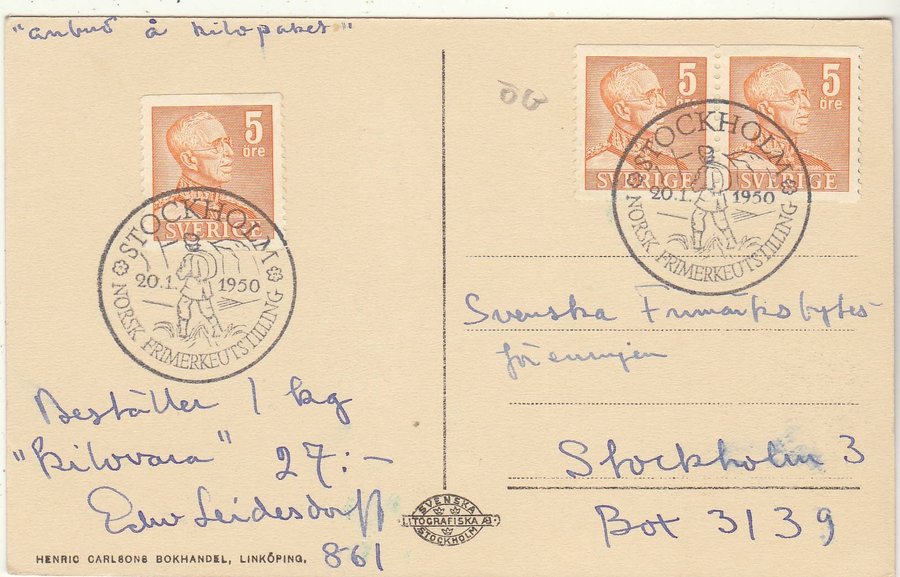 "anbud å kilopaket"
5
öre
SVERIGE
STOCKHOLM
20.1. 1950
NORSK FRIMERKEUTSTILLING
Beställer 1 kg
"kilovara" 27:-
Edw Leidesdorff
861
HENRIC CARLSONS BOKHANDEL, LINKÖPING.
SVENSKA
LITOGRAFISKA AB.
STOCKHOLM
ÖB
5
öre
SVERIGE
5
öre
SVERIGE
STOCKHOLM
20.1. 1950
NORSK FRIMERKEUTSTILLING
Svenska Frimärksbytes-
föreningen
Stockholm 3
Box 3139